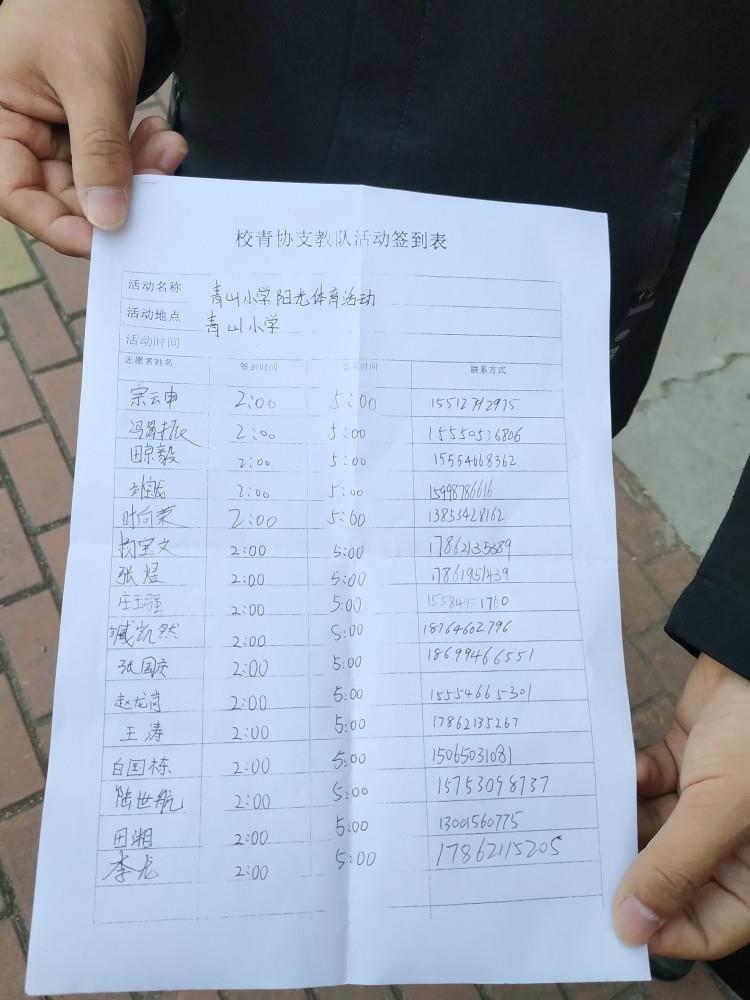 校青协支教队活动签到表
活动名称 青山小学阳光体育活动
活动地点 青山小学
活动时间
志愿者姓名 签到时间 签退时间 联系方式
宗云申 2:00 5:00 15512792975
2:00 5:00 15550536806
田宗毅 2:00 5:00 15554668362
2:00 5:00 15998786616
时向荣 2:00 5:00 13853428162
2:00 5:00 17862135389
张煜 2:00 5:00 17861951439
庄玉强 2:00 5:00
臧凯然 2:00 5:00 18764602796
张国庆 2:00 5:00 18699466551
赵龙岗 2:00 5:00 15554665301
王涛 2:00 5:00 17862135267
白国栋 2:00 5:00 15065031081
陆世航 2:00 5:00 15753098737
田湘 2:00 5:00 13001560775
李龙 2:00 5:00 17862115205